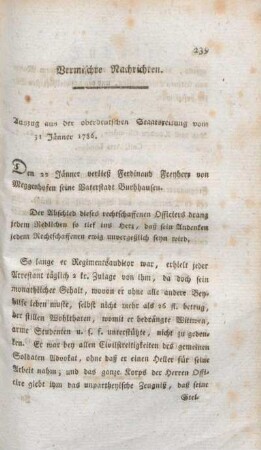 239
Vermischte Nachrichten.
Auszug aus der oberdeutschen Staatszeitung vom
31 Jänner 1786.
Den 22 Jänner verließ Ferdinand Freyherr von
Meggenhofen seine Vaterstadt Burkhausen.
Der Abschied dieses rechtschaffenen Officiers drang
jedem Redlichen so tief ins Herz, daß sein Andenken
jedem Rechtschaffenen ewig unvergeßlich seyn wird.
So lange er Regimentsauditor war, erhielt jeder
Arrestant täglich 2 kr. Zulage von ihm, da doch sein
monatlicher Gehalt, wovon er ohne alle andere Bey-
hülfe leben mußte, selbst nicht mehr als 26 fl. betrug,
der stillen Wohlthaten, womit er bedrängte Wittwen,
arme Studenten u. s. f. unterstützte, nicht zu geden-
ken. Er war bey allen Civilstreitigkeiten des gemeinen
Soldaten Advokat, ohne daß er einen Heller für seine
Arbeit nahm; und das ganze Korps der Herren Offi-
ciere giebt ihm das unpartheyische Zeugniß, daß seine
Stel-